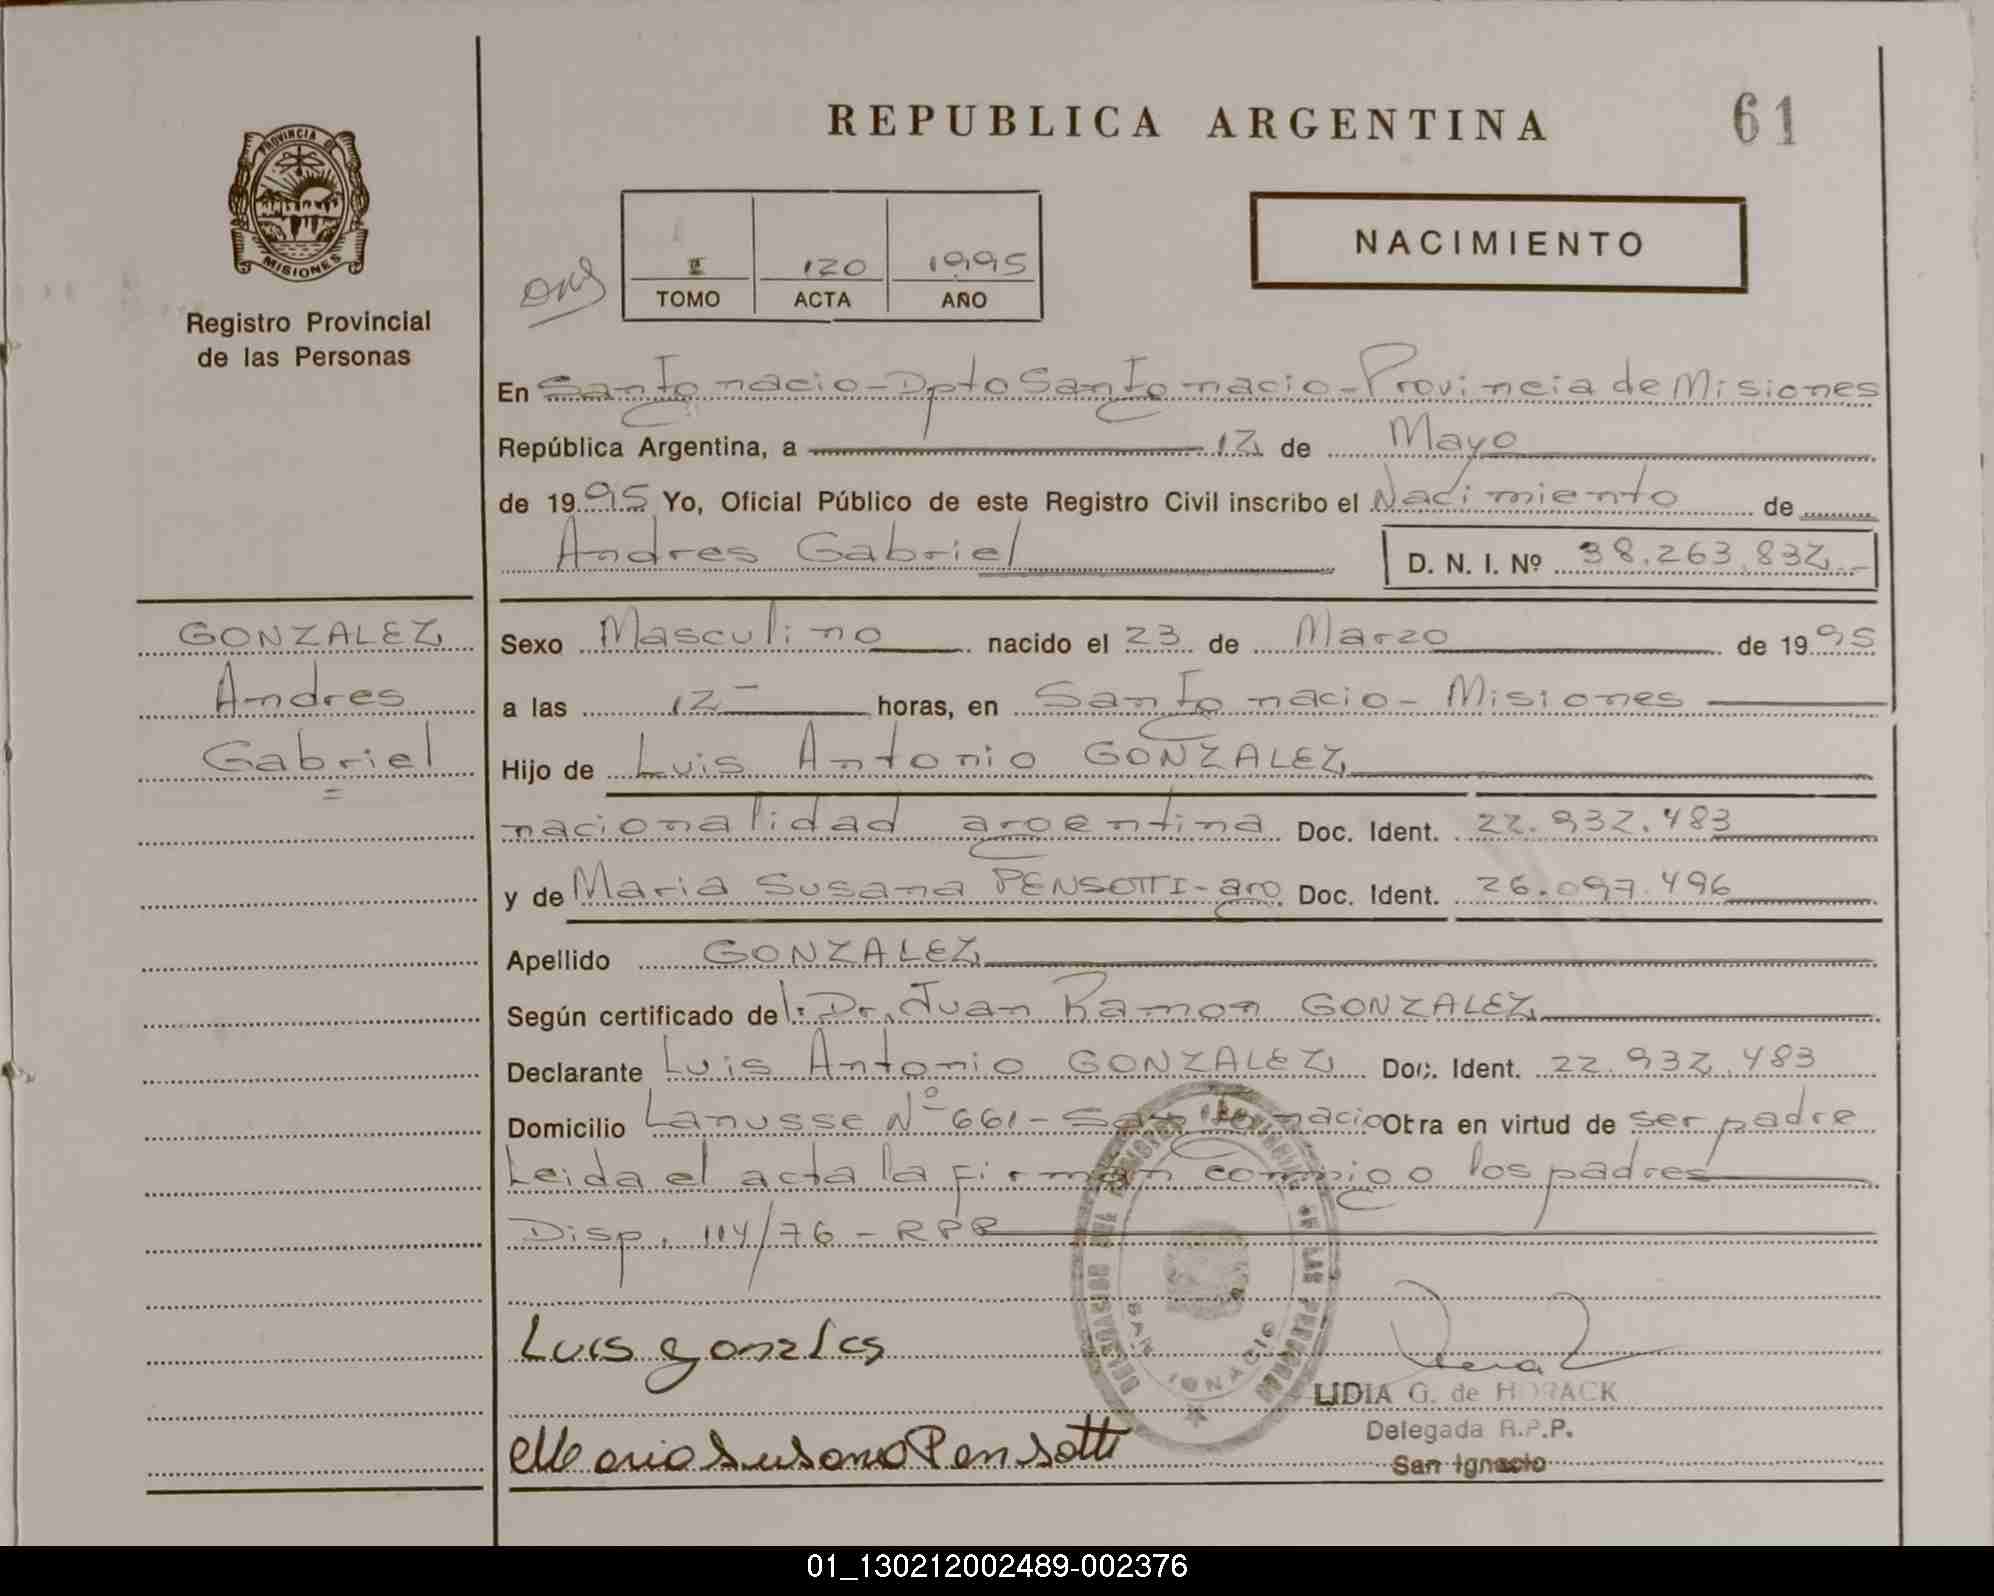 REPUBLICA ARGENTINA
61
PROVINCIA DE
MISIONES
Registro Provincial
de las Personas
NACIMIENTO
II 120 1995
TOMO ACTA AÑO
En San Ignacio - Dpto San Ignacio - Provincia de Misiones
República Argentina, a 12 de Mayo
de 1995 Yo, Oficial Público de este Registro Civil inscribo el Nacimiento de
Andres Gabriel D. N. I. Nº 38.263.832
GONZALEZ
Andres
Gabriel
Sexo Masculino nacido el 23 de Marzo de 1995
a las 12 horas, en San Ignacio - Misiones
Hijo de Luis Antonio GONZALEZ
nacionalidad argentina Doc. Ident. 22.932.483
y de Maria Susana PENSOTTI - arg Doc. Ident. 26.097.496
Apellido GONZALEZ
Según certificado del: Dr. Juan Ramon GONZALEZ
Declarante Luis Antonio GONZALEZ Doc. Ident. 22.932.483
Domicilio Lanusse Nº 661 - San Ignacio Obra en virtud de ser padre
Leida el acta la firman conmigo los padres
Disp. 114/76 - RPP
Luis gonzales
Maria Susana Pensotti
SAN IGNACIO
LIDIA G. de HORACK
Delegada R.P.P.
San Ignacio
01_130212002489-002376